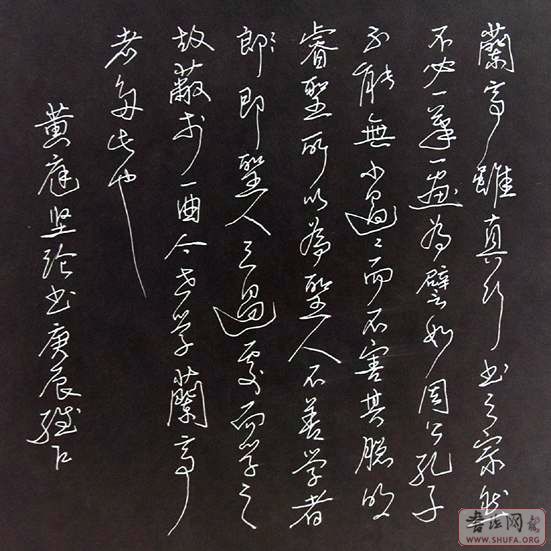 蘭亭雖真行书之宗然
不必一筆一畫為譬如周公孔子
不能無小過〻而不害其聰明
睿聖所以為聖人不善学者
即聖人之過處而学之
故蔽於一曲今世学蘭亭
者多此也
黄庭坚论书庚辰
WWW.SHUFA.ORG